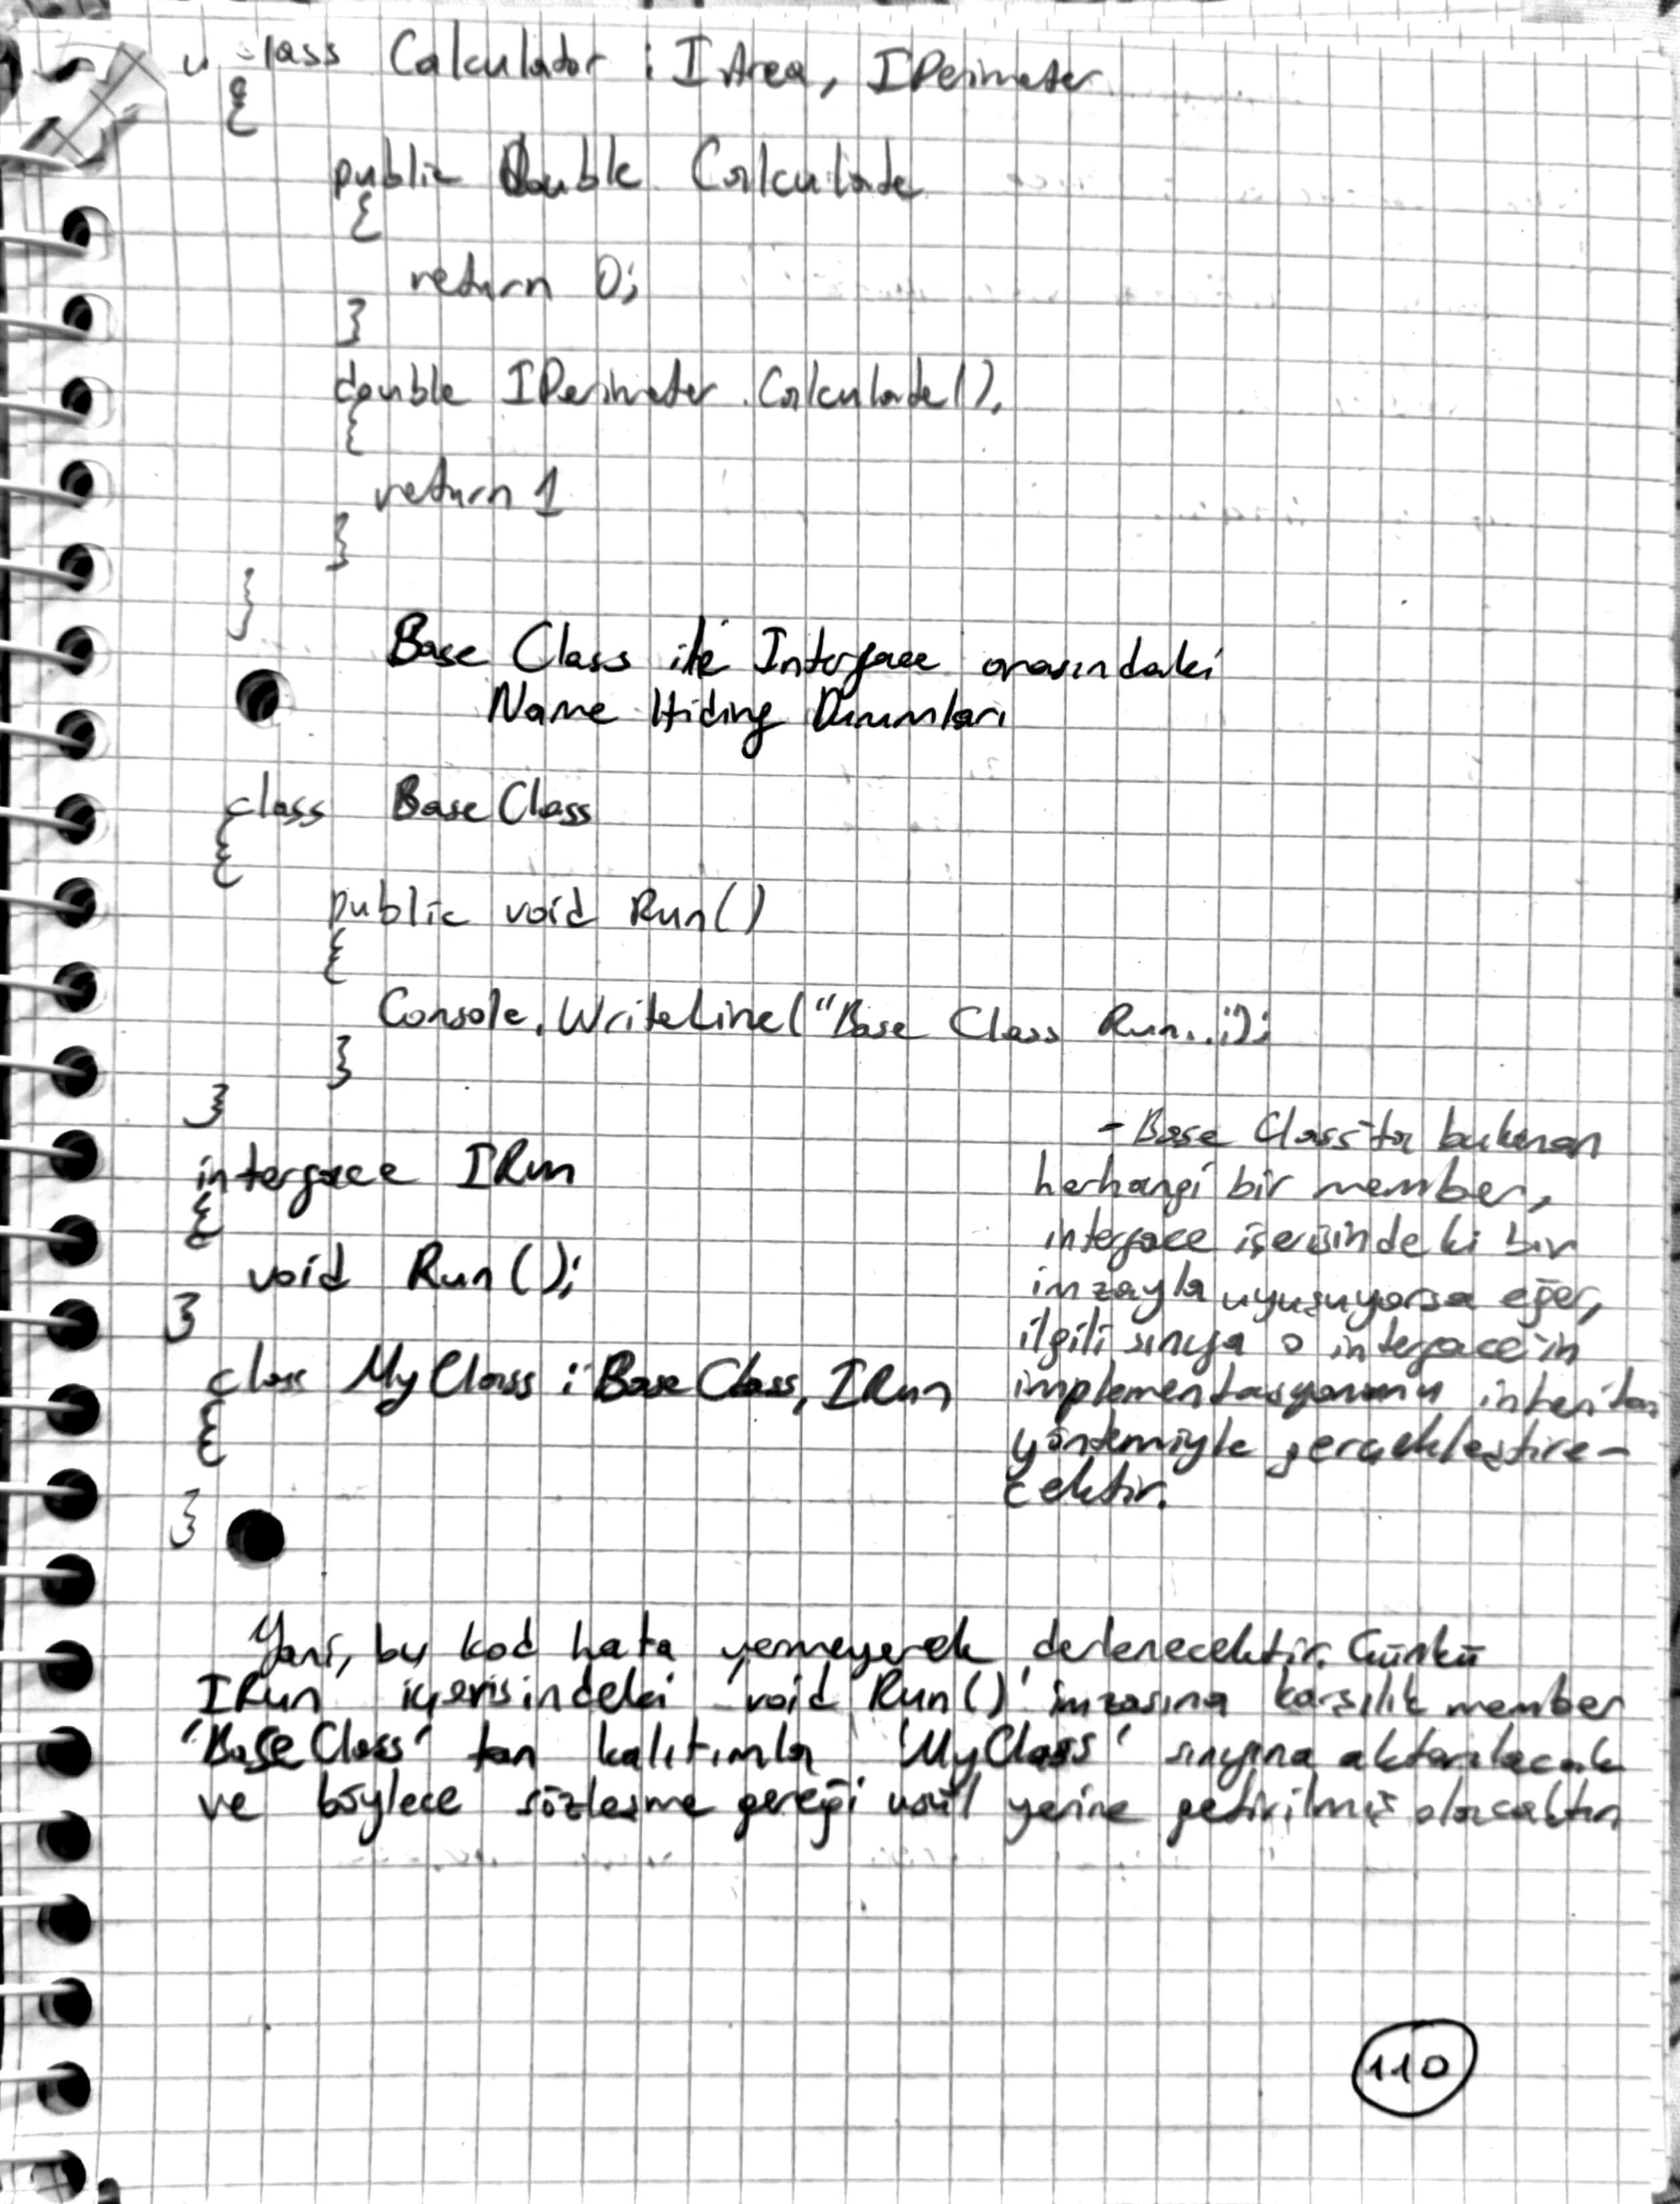 class Calculator : IArea, IPerimeter
{
public double Calculate
{
return 0;
}
double IPerimeter.Calculate(),
{
return 1
}
}
Base Class ile Interface arasındaki
Name Hiding Durumları
class BaseClass
{
public void Run()
{
Console.WriteLine("Base Class Run...");
}
}
interface IRun
{
void Run();
}
class MyClass : BaseClass, IRun
{
}
- Base Class'ta bulunan
herhangi bir member,
interface içerisindeki bir
imzayla uyuşuyorsa eğer,
ilgili sınıfa o interface'in
implementasyonunu
yöntemiyle gerçekleştire-
cektir.
Yani, bu kod hata vermeyerek derlenecektir. Çünkü
IRun içerisindeki 'void Run()' imzasına karşılık member
'BaseClass' tan kalıtımla 'MyClass' sınıfına aktarılacak
ve böylece sözleşme gereği usül yerine getirilmiş olacaktır
110